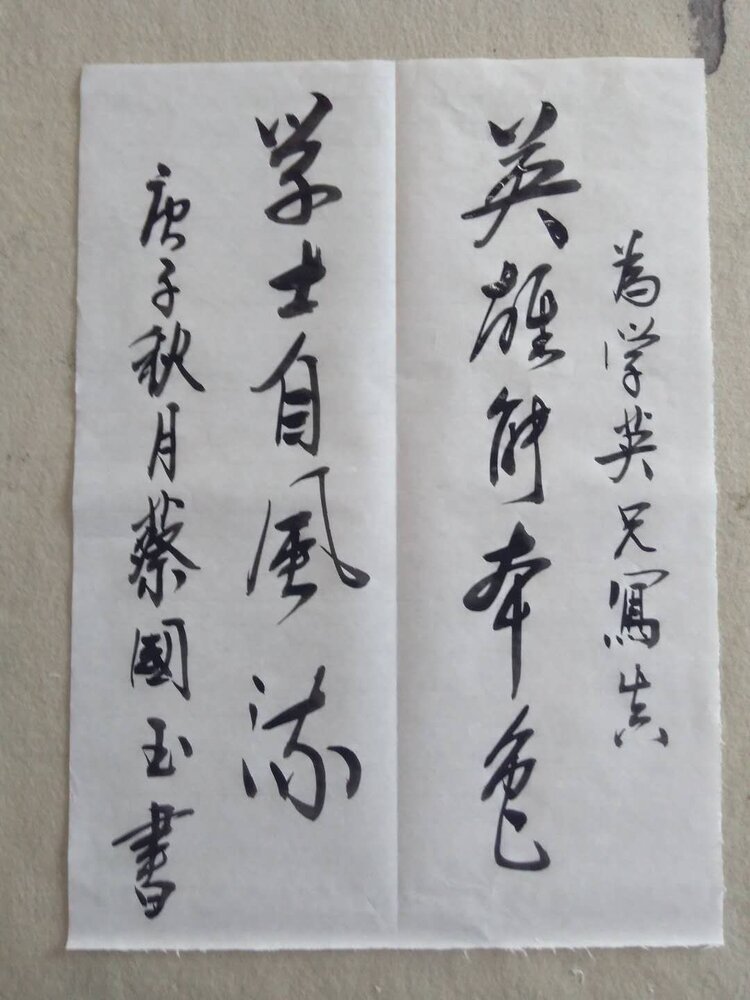 为学英兄寫真
英雄能本色
学士自風流
庚子秋月蔡國玉書